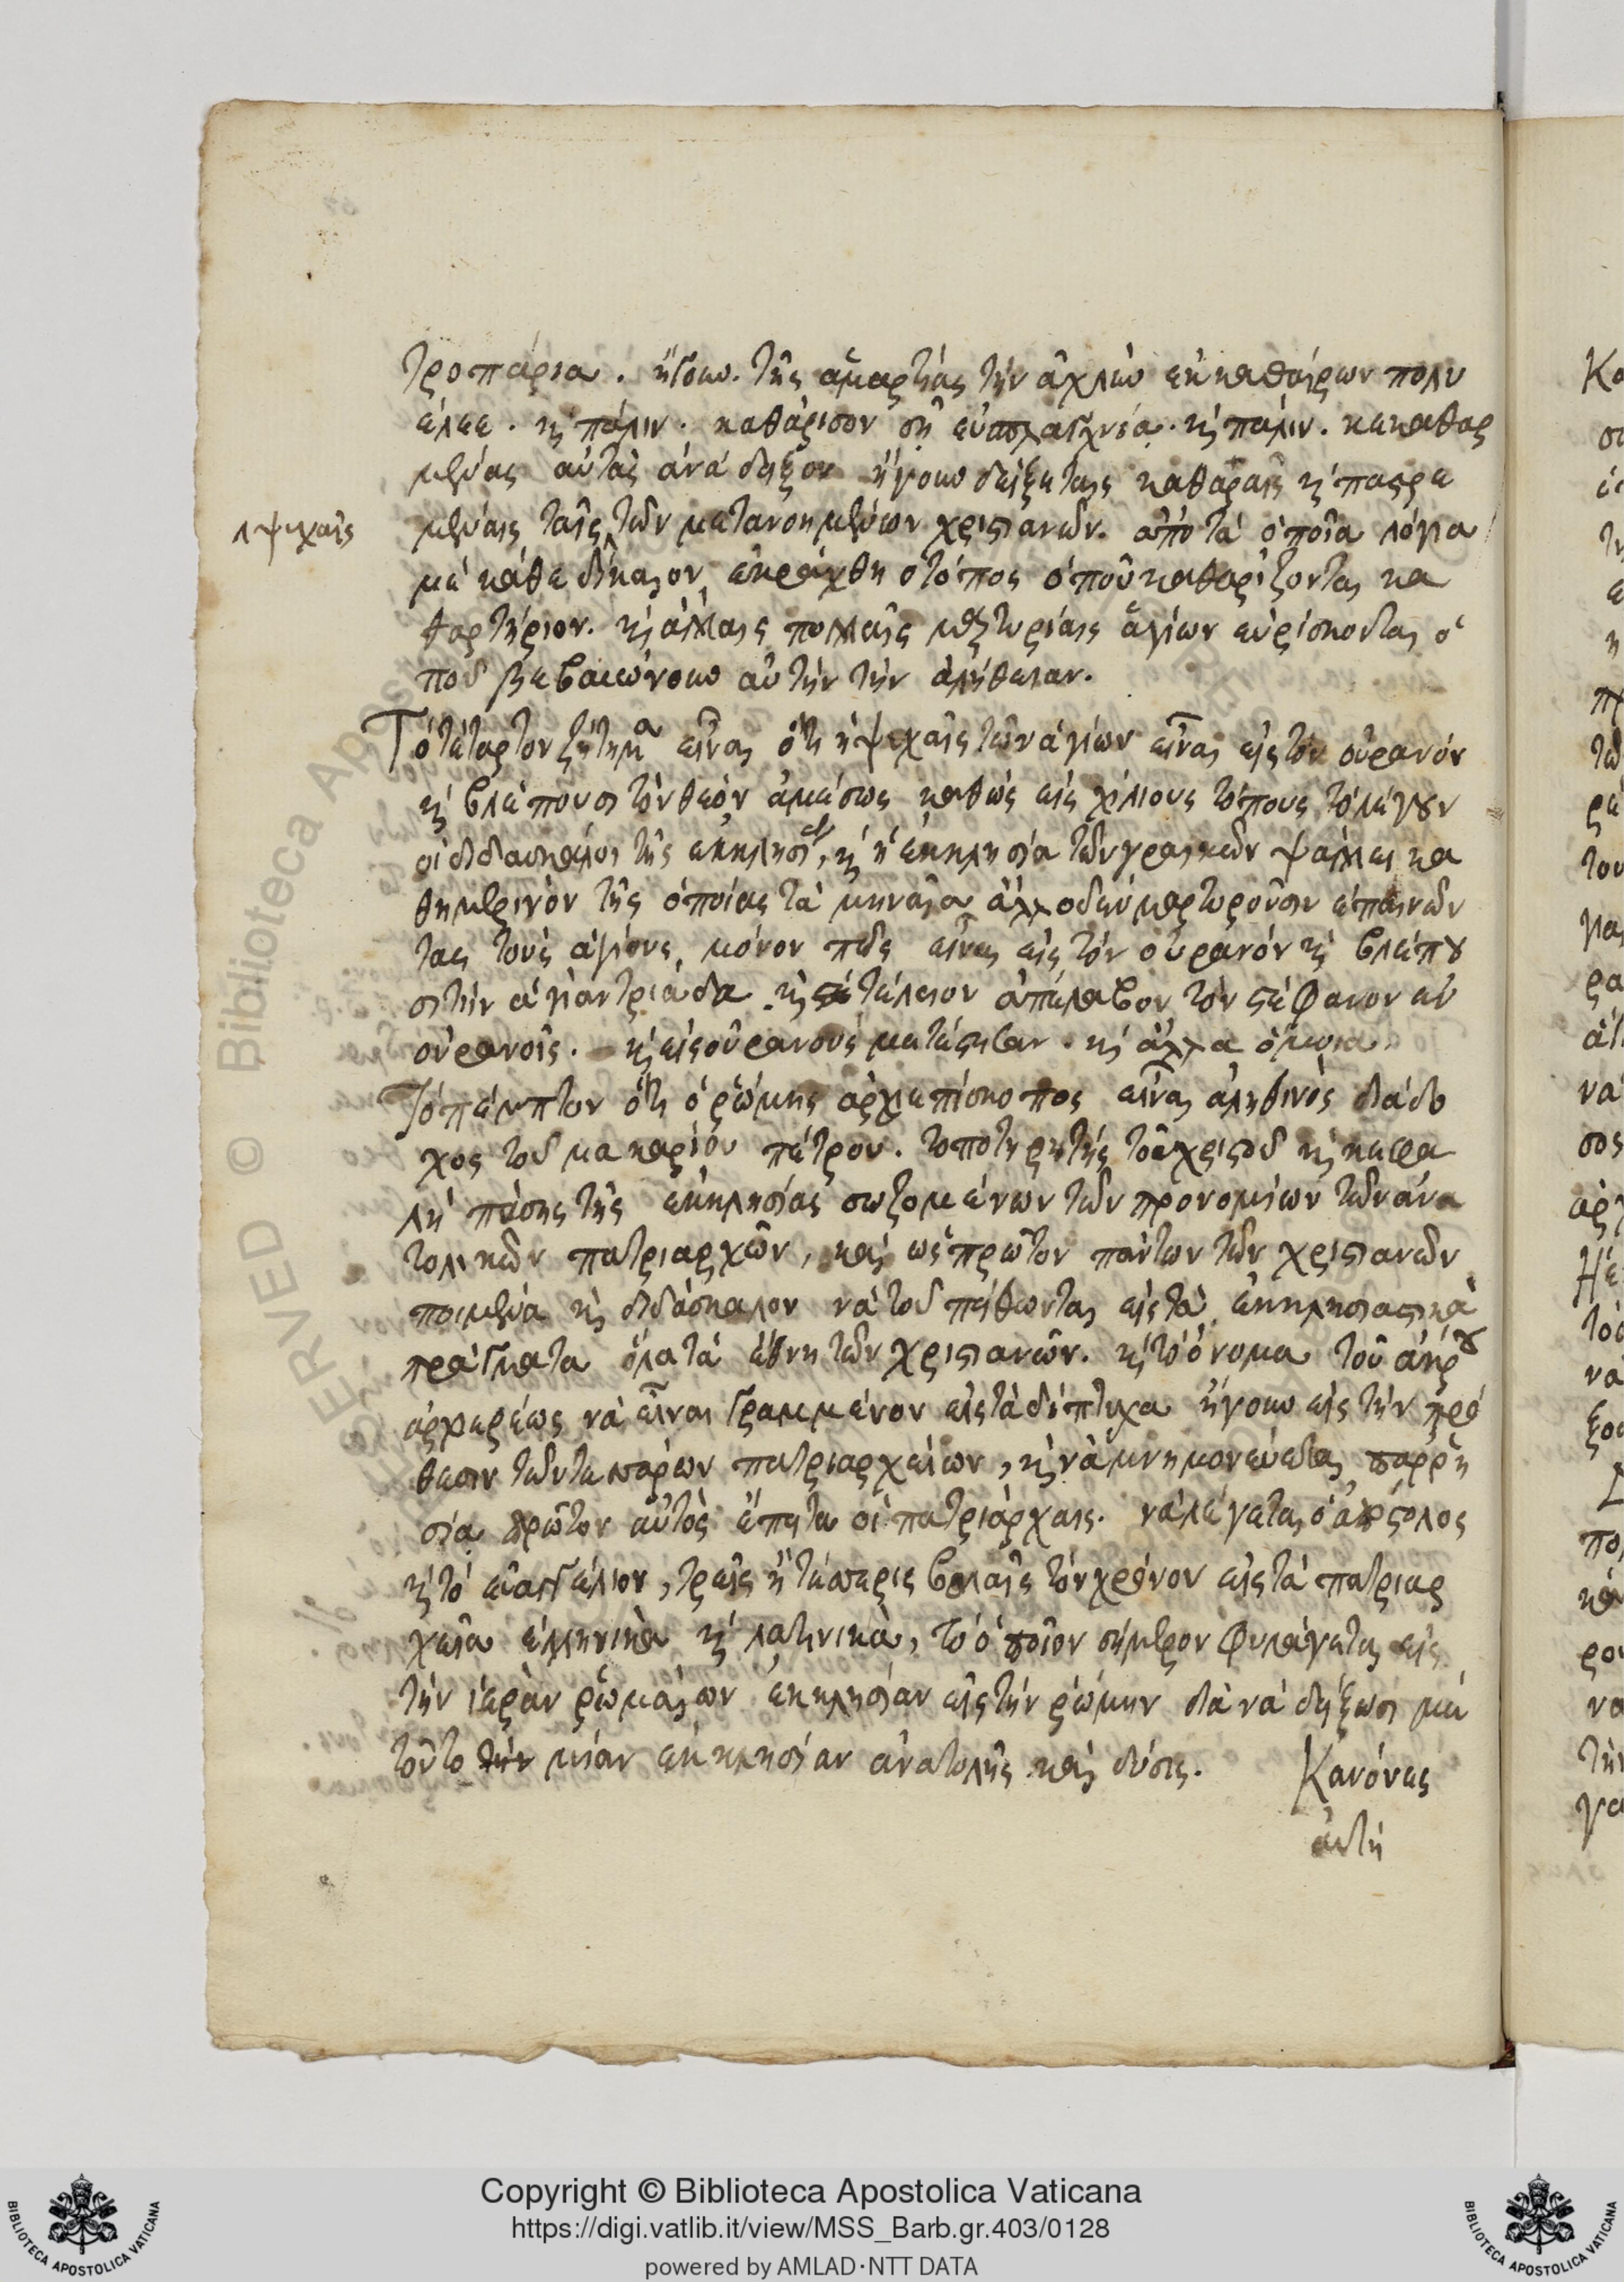 τροπάρια. ἤγουν. τῆς ἁμαρτίας τὴν ἀχλὺν ἐκκαθαίρων πολυ
έλεε. κὶ πάλιν. καθάρισον σῇ εὐσπλαγχνίᾳ. κὶ πάλιν. κεκαθαρ
μένας αὐτὰς ἀνάδειξον ἤγουν δείξεταις καθαραῖς κὶ παστρε
μέναις ταῖς ψυχαῖς τῶν μετανοημένων χριστιανῶν. ἀπὸ τὰ ὁποῖα λόγια
μὲ κάθε δίκαιον ἐκράχθη ὁ τόπος ὁποῦ καθαρίζονται κα
θαρτήριον. κὶ ἄλλαις πολλαῖς μαρτυρίαις ἁγίων εὑρίσκονται ὁ
ποῦ βεβαιώνουν αὐτὴν τὴν ἀλήθειαν.
Τὸ τέταρτον ζήτημα εἶναι ὅτι ἡ ψυχαῖς τῶν ἁγίων εἶναι εἰς τὸν οὐρανὸν
κὶ βλέπουσι τὸν θεὸν ἀμέσως καθὼς εἰς χίλιους τόπους τὸ λέγουν
οἱ διδασκάλοι τῆς ἐκκλησίας, κὶ ἡ ἐκκλησία τῶν γραικῶν ψάλλει κα
θημερινὸν τῆς ὁποίας τὰ μηναῖα ἄλλο δὲν μαρτυροῦσιν ἐπαινῶν
τας τοὺς ἁγίους, μόνον πῶς εἶναι εἰς τὸν οὐρανὸν κὶ βλέπου
σι τὴν ἁγίαν τριάδα. κὶ τέλειον ἀπέλαβον τὸν στέφανον ἐν
οὐρανοῖς. κὶ εἰς οὐρανοὺς μετέστησαν. κὶ ἄλλα ὅμοια.
Τὸ πέμπτον ὅτι ὁ ῥώμης ἀρχιεπίσκοπος εἶναι ἀληθινὸς διάδο
χος τοῦ μακαρίου πέτρου. τοποτηρητὴς τοῦ χριστοῦ κὶ κεφα
λὴ πάσης τῆς ἐκκλησίας σωζομένων τῶν προνομίων τῶν ἀνα
τολικῶν πατριαρχῶν, καὶ ὡς πρῶτον πάντων τῶν χριστιανῶν
ποιμένα κὶ διδάσκαλον νὰ τοῦ πείθωνται εἰς τὰ ἐκκλησιαστικὰ
πράγματα ὅλα τὰ ἔθνη τῶν χριστιανῶν. κὶ τὸ ὄνομα τοῦ ἄκρου
ἀρχιερέως νὰ εἶναι γραμμένον εἰς τὰ δίπτυχα ἤγουν εἰς τὴν πρό
θεσιν τῶν τεσσάρων πατριαρχείων, κὶ νὰ μνημονεύεται παρρη
σίᾳ πρῶτον αὐτὸς ἔπειτα οἱ πατριάρχαις. νὰ λέγεται ὁ ἀπόστολος
κὶ τὸ εὐαγγέλιον, τρεῖς ἢ τέσσερις βολαῖς τὸν χρόνον εἰς τὰ πατριαρ
χεῖα ἑλληνικὰ κὶ λατινικὰ, τὸ ὁποῖον σήμερον φυλάγεται εἰς
τὴν ἱερὰν ῥωμαίων ἐκκλησίαν εἰς τὴν ῥώμην διὰ νὰ δείξωσι μὲ
τοῦτο τὴν μίαν ἐκκλησίαν ἀνατολῆς καὶ δύσις. Κανόνες
αὐτὴ
Copyright © Biblioteca Apostolica Vaticana
https://digi.vatlib.it/view/MSS_Barb.gr.403/0128
powered by AMLAD·NTT DATA